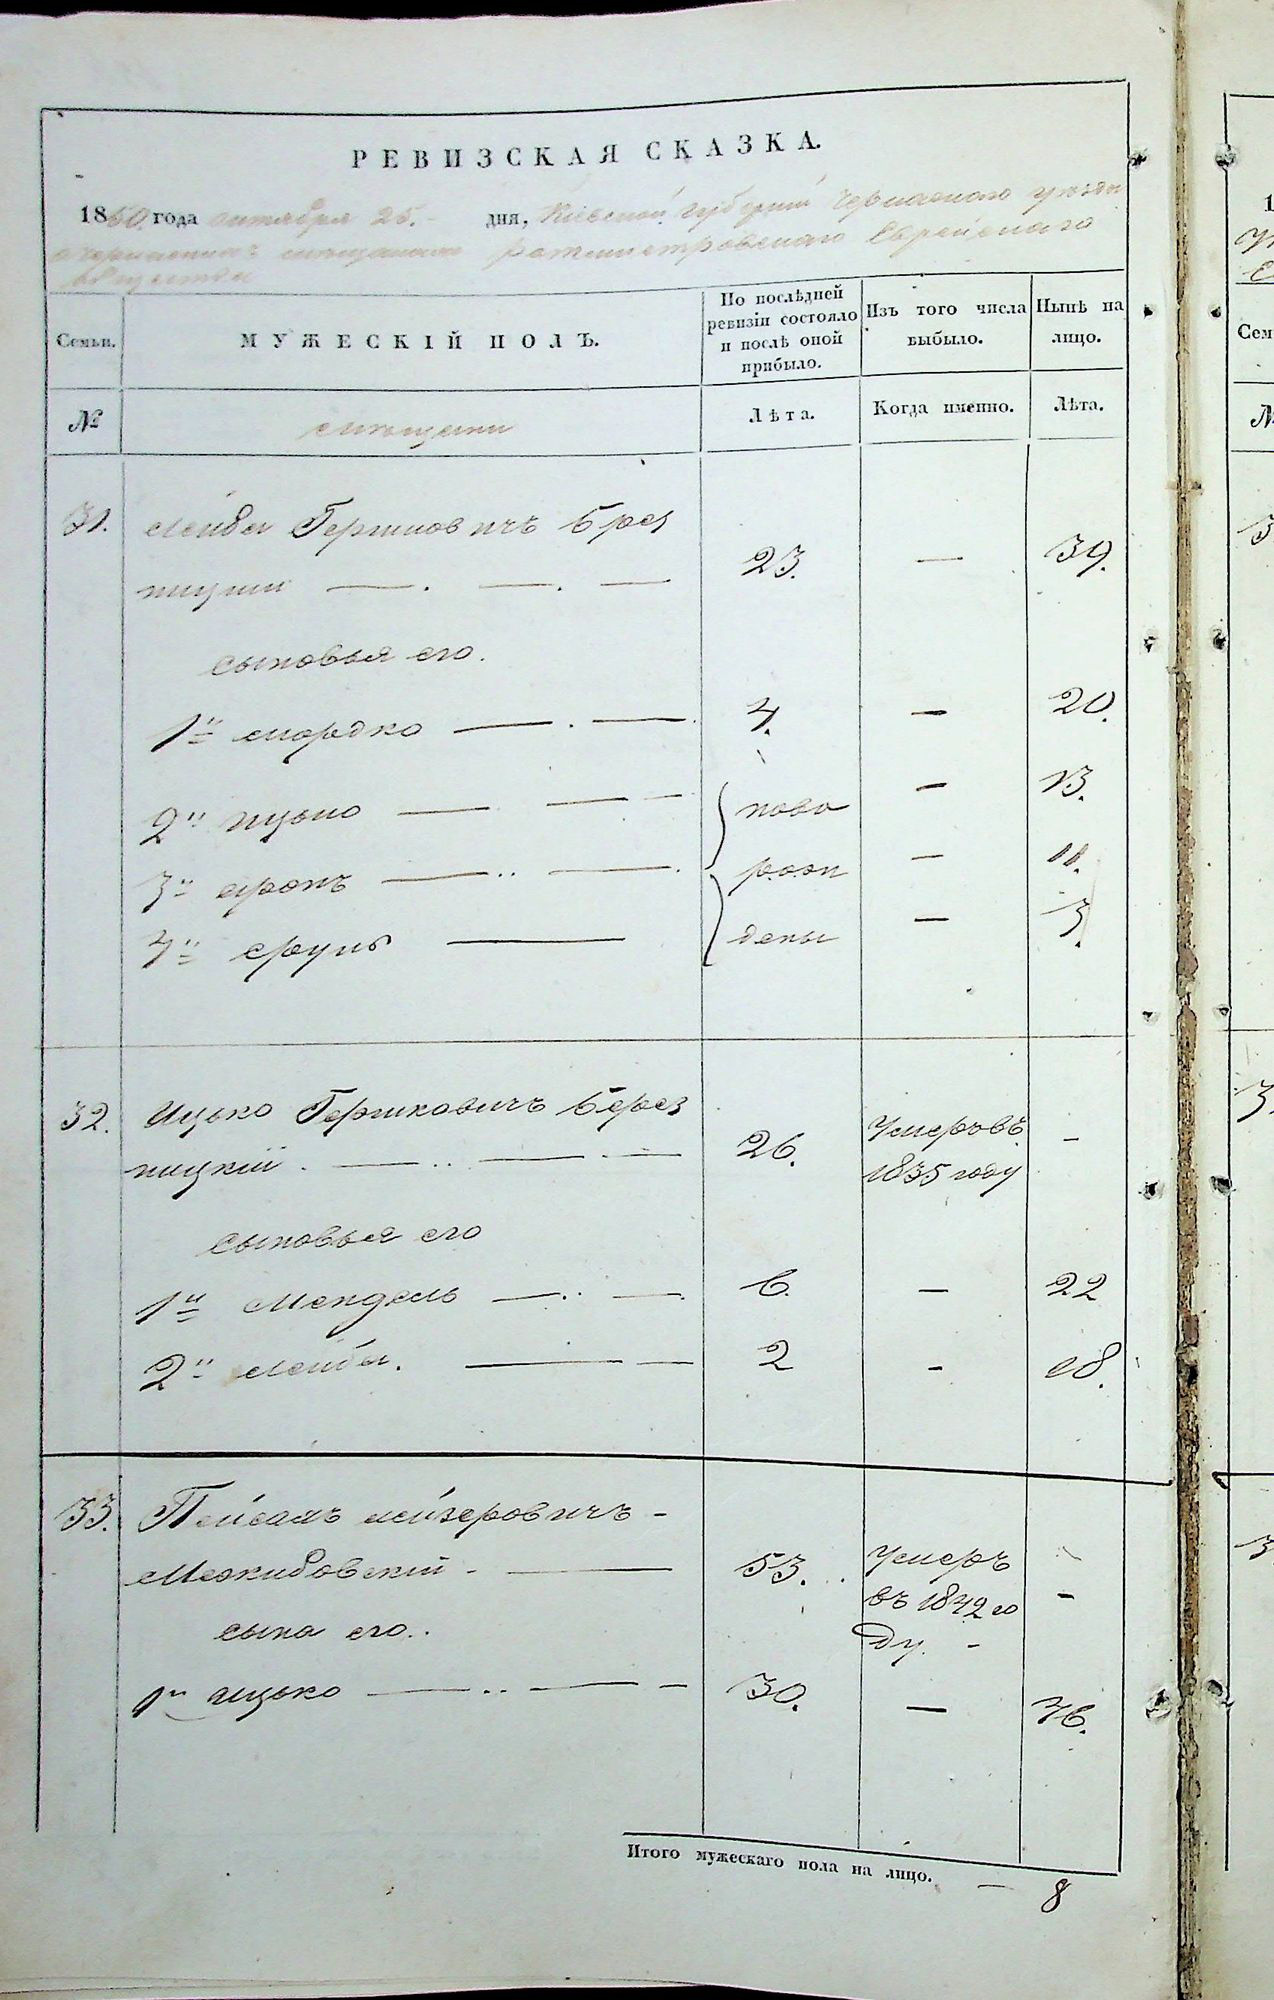 РЕВИЗСКАЯ СКАЗКА.
1850 года октября 25. дня, Кіевской губерніи Черкаскаго уезда
о черкаскихъ мещанахъ ротмистровскаго Еврейскаго
общества
Семьи. МУЖЕСКІЙ ПОЛЪ. По послѣдней ревизіи состояло и послѣ оной прибыло. Изъ того числа выбыло. Нынѣ на лицо.
№ мещани Лѣта. Когда именно. Лѣта.
31. Лейба Гершковичъ Брез
ницкій 23. — 39.
сыновья его.
1й Мордко 4. — 20.
2й Ицько ново — 13.
3й Аронъ рож — 11.
4й Сруль дены — 3.
32. Ицько Гершковичъ Берез
ницкій. 26. Умеръ въ 1835 году –
сыновья его
1й Мендель 6. — 22
2й Лейба. 2 - 18.
33. Пейсахъ Лейзеровичъ -
Межибовскій - 53. Умеръ въ 1842 го ду. –
сына его..
1й Ицько 30. — 46.
Итого мужескаго пола на лицо. — 8